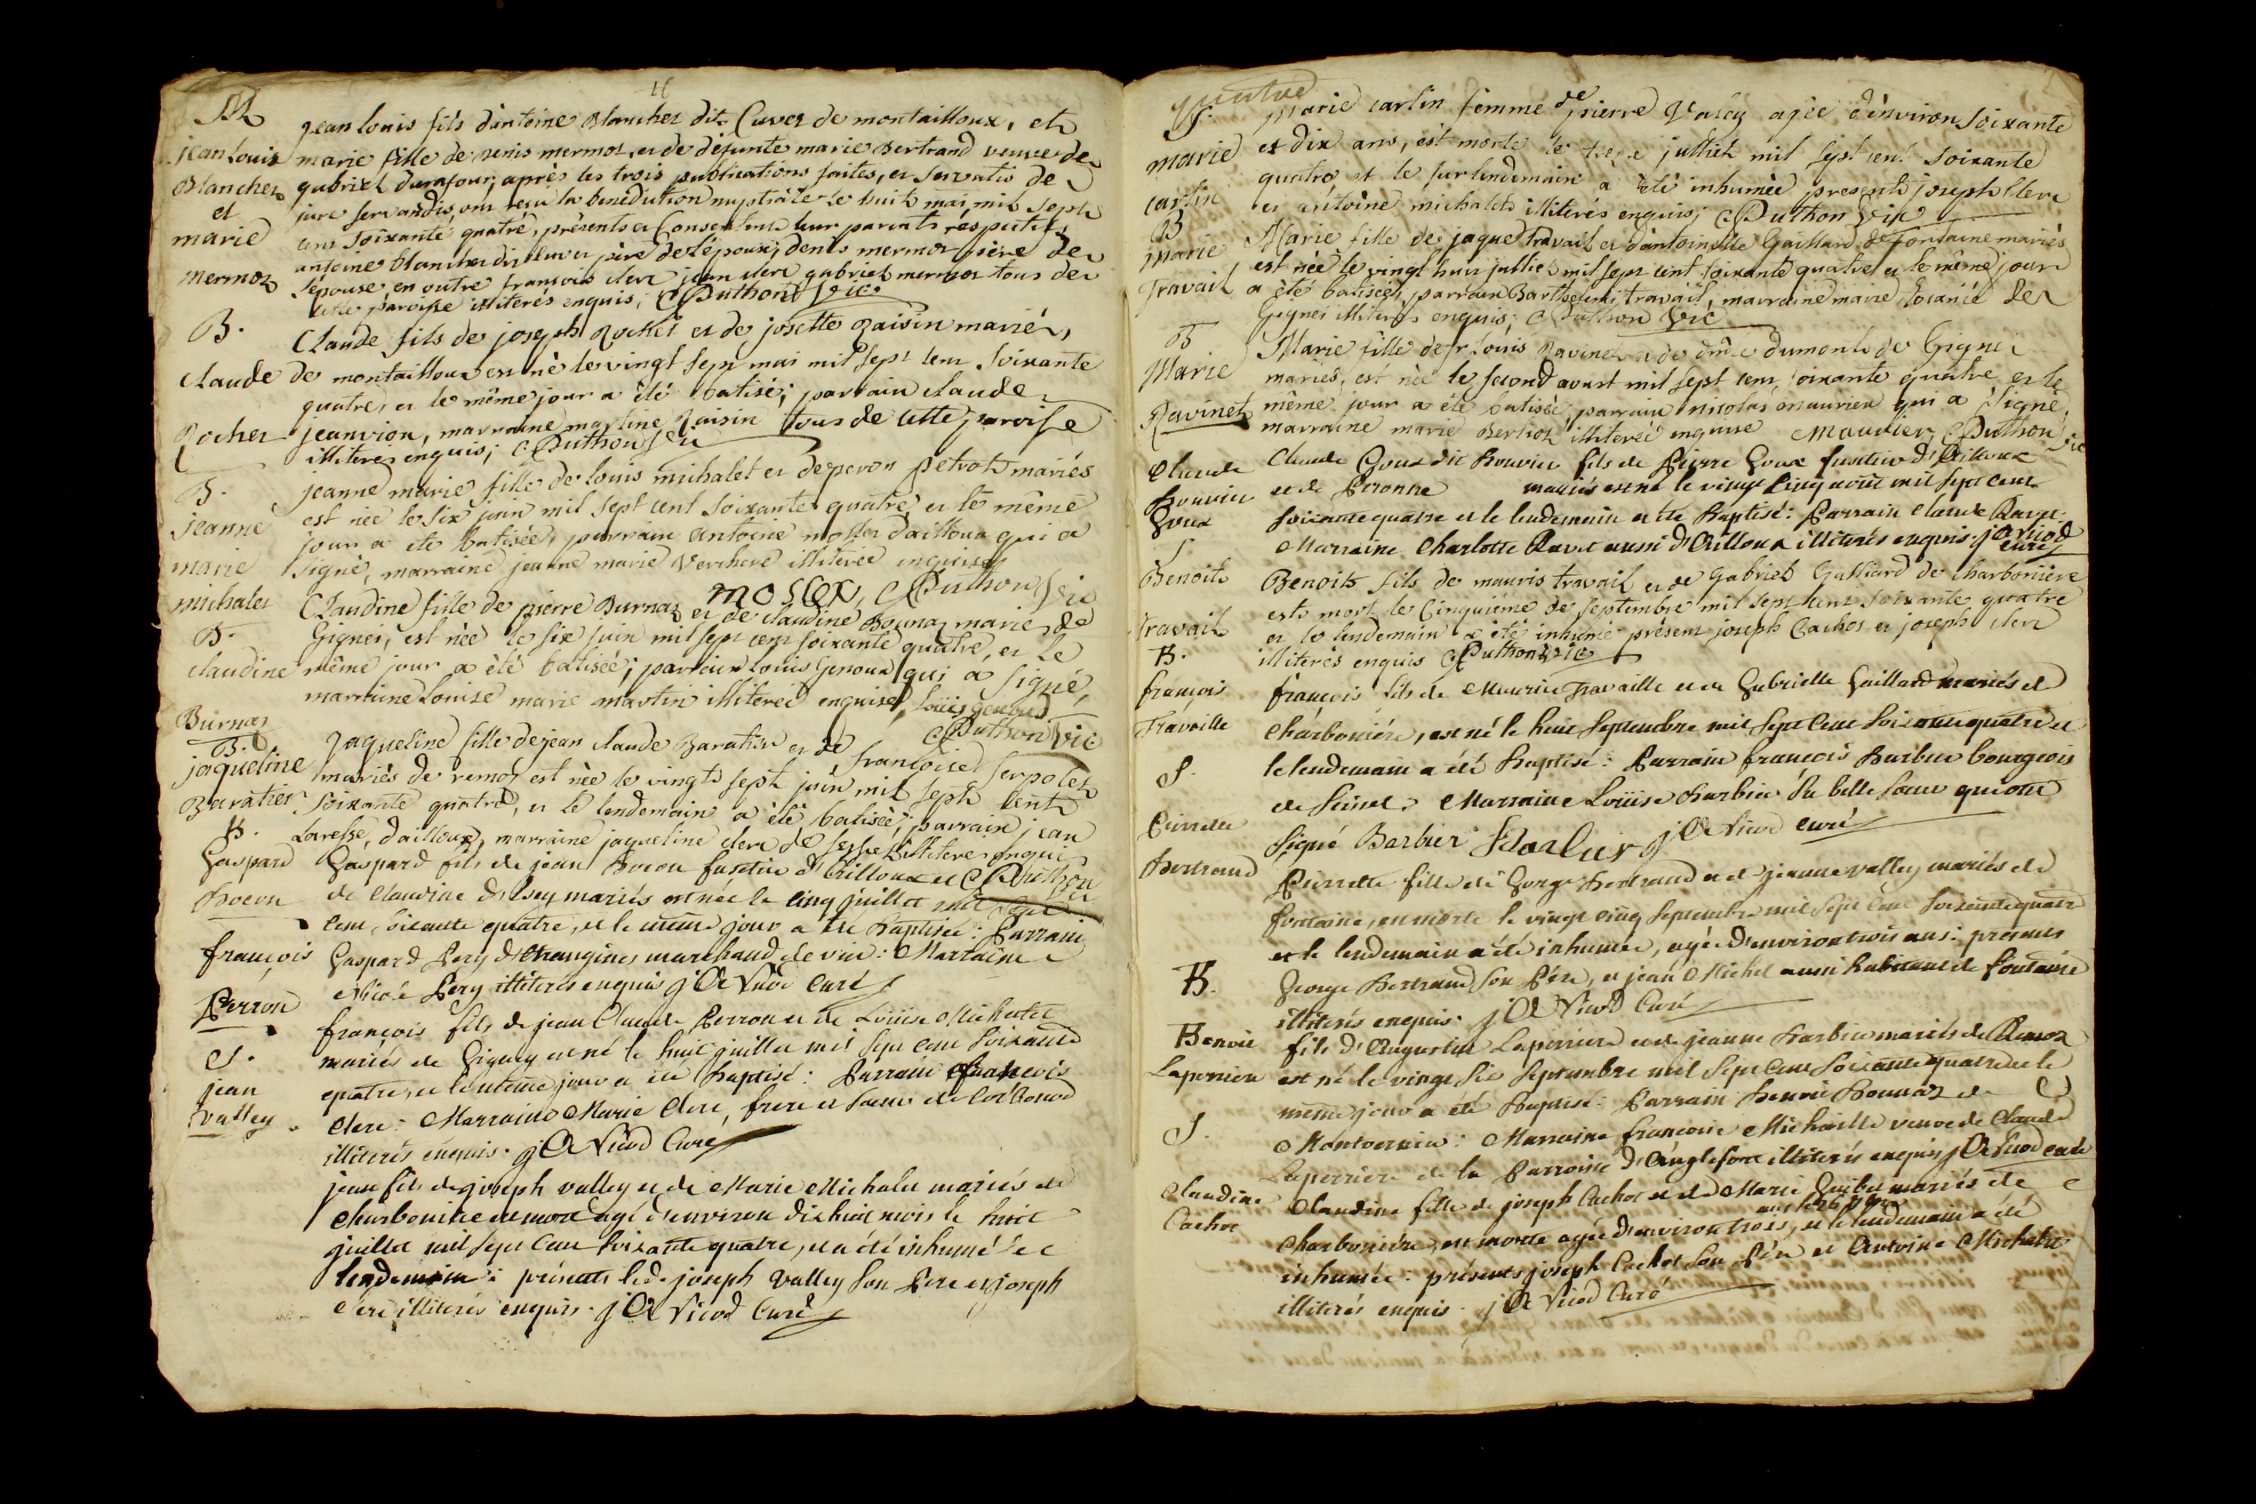 M
jean louis fils d'antoine Blanchet dit Cuvez de montailloux, et
jean louis
marie fille de denis mermoz, et de défunte marie Bertrand veuve de
Blanchet
gabriel durafour, après les trois publications faites, et servatis de
et
jure servandis, ont reçu la bénédiction nuptiale le huit mai mil sept
marie
cent soixante quatre, présents et Consentents leur parents respectifs,
antoine blanchet dit cuvez père de l'époux; denis mermoz père de
mermoz
l'épouse en outre françois clerc jean clerc gabriel mermoz tous de
cette paroisse illiterés enquis; Puthon Vic
B.
Claude fils de joseph Rochet et de josette Raisin mariés,
claude
de montailloux est né le vingt sept mai mil sept cent soixante
quatre, et le même jour a été batisé; parrain claude
Rochet
jeanvion, marraine martine Raisin tous de cette paroisse
illiteres enquis; Puthon Vic
B.
jeanne marie fille de louis michalet et de peron petrot mariés
jeanne
est née le six juin mil sept cent soixante quatre et le même
jour a été batisée, parrain antoine mossex d'ailloux qui a
marie
signé, marraine jeanne marie Verchere illiterée enquise
michalet
mossex, Puthon Vic
Claudine fille de pierre Burnaz et de claudine Bournaz mariés de
B.
Gignei, est née le six juin mil sept cent soixante quatre, et le
claudine
même jour a été batisée; parrain louis Genoux qui a signé,
marraine Louise marie martin illiterée enquise, Loüis genoux
Burnaz
Puthon Vic
B.
Jaqueline fille de jean claude Baratier et de françoise serpolet
jaqueline
mariés de remoz est née le vingt sept juin mil sept cent
Baratier
soixante quatre, et le lendemain a été batisée; parrain jean
d'ailloux, marraine jaqueline clerc de illiteres enquis
B.
Puthon Vic
Gaspard
Gaspard fils de jean Bocon fusitier d'Ailloux et
Bocon
de Claudine mariés est née le cinq juillet mil sept
cent soixante quatre, et le même jour a été Baptisé: Parrain
françois
Gaspard Pery d'Etrangines marchand de vin: Marraine
Perron
Nicole Pery illiterés enquis j A Nicod Curé
françois fils de jean Claude Perron et de Loüise Michalet
mariés de Gigney est né le huit juillet mil sept cent soixante
S.
quatre, et le même jour a été Baptisé: Parrain françois
jean
Clerc: Marraine Marie Clerc, frere et soeur de
valley
illiterés enquis. j A Nicod Curé
jean fils de joseph valley et de Marie Michalet mariés de
Charboniere est mort agé d'environ dix huit mois le huit
juillet mil sept cent soixante quatre, et a été inhumé le
lendemain: présents led. joseph valley son Pere et joseph
Clerc illiterés enquis. j A Nicod Curé
S.
marie carlin femme de pierre Valey agée d'environ soixante
marie
et dix ans, est morte le treze juillet mil sept cent soixante
quatre et le surlendemain a été inhumée presents joseph clerc
carlin
et antoine michalet illiterés enquis; Puthon Vic
B
Marie fille de jaque travail et d'antoinette Gaillard de fontaine mariés
marie
est née le vingt huit juillet mil sept cent soixante quatre et le même jour
Travail
a été batisée, parrain Barthelemi travail, marraine marie de
Gignei illiteres enquis; Puthon Vic
B
Marie fille de sr louis Ravinet et de dme dumont de Gignei
Marie
mariés, est née le second aoust mil sept cent soixante quatre et le
même jour a été batisée; parrain nicolas maurier qui a signé,
Ravinet
marraine marie Berliot illiterée enquise Maurier Puthon Vic
Claude
Claude Goux dit Bouvier fils de Pierre Goux fusitier d'Ailloux
Bouvier
et de Peronne mariés est né le vingt cinq août mil sept cent
Goux
soixante quatre et le lendemain a été Baptisé: Parrain Claude
S
Marraine Charlotte Ravet aussi d'Ailloux illiterés enquis. j A Nicod curé
Benoit
Benoit fils de mauris travail et de Gabriel Galliard de charboniere
est mort le cinquième de septembre mil sept cent soixante quatre
travail
et le lendemain a été inhumé présent joseph Cachot et joseph clerc
B.
illiterés enquis Puthon Vic
françois
françois fils de Maurice Travaille et de Gabrielle Gaillard mariés de
Travaille
Charboniére, est né le huit Septembre mil sept cent soixante quatre et
S.
le lendemain a été Baptisé: Parrain françois Barbier bourgeois
de Seissel. Marraine Loüise Barbier sa belle soeur qui ont
Pierrette
signé Barbier Barbier j A Nicod curé
Bertrand
Pierrette fille de George Bertrand et de jeanne valley mariés de
fontaine, est morte le vingt cinq Septembre mil sept cent soixante quatre
et le lendemain a été inhumée, agée d'environ trois ans: présents
B.
George Bertrand son Pére, et jean Michel aussi habitant de fontaine
illiterés enquis. j A Nicod Curé
Benoit
fils d'Augustin Laperriere et de jeanne Barbier mariés de Remoz
Laperriere
est né le vingt six Septembre mil sept cent soixante quatre et le
même jour a été Baptisé: Parrain Benoit Bonnaz de
S.
Montvernier: Marraine françoise Michaille veuve de Claude
Laperriere de la Parroisse d'Anglefort illiterés enquis j A Nicod curé
Claudine
Claudine fille de joseph Cachot et de Marie Guibet mariés de
Cachot
Charboniére, est morte agée d'environ trois ans, et le lendemain a été
inhumée: présents joseph Cachot son Pére et Antoine Michalet
illiterés enquis. j A Nicod Curé